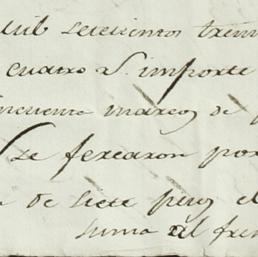 mil setesientos trein
cuatro Ps. importe
incuenta marcos de
se fexearon por
de siete pesos el
suma al fren